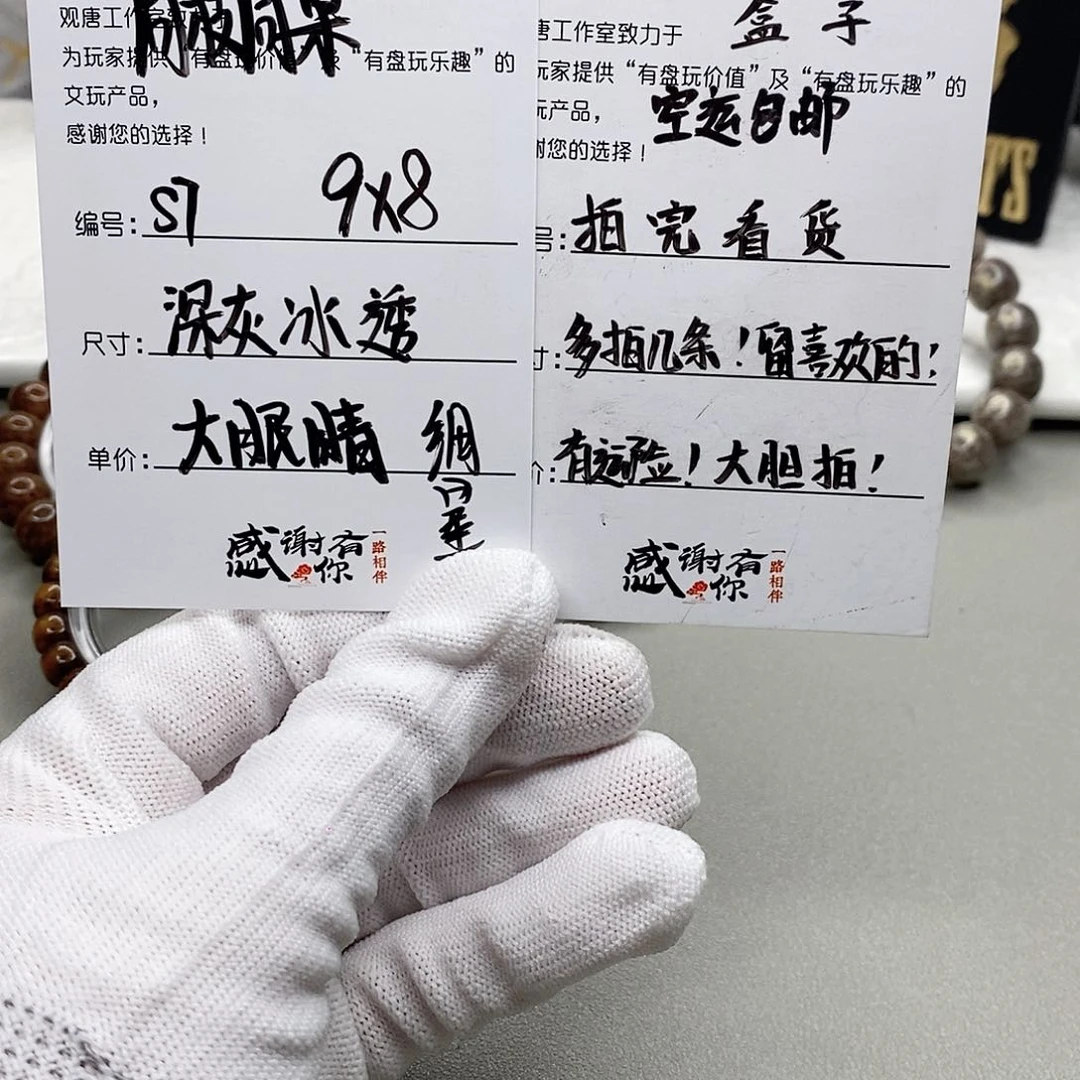 观唐工作室致力于
为玩家提供“有盘玩价值”及“有盘玩乐趣”的
文玩产品，
感谢您的选择！
编号：S7 9X8
尺寸：深灰冰透
单价：大眼睛 绸
星
感谢有你
一路相伴
盒子
唐工作室致力于
玩家提供“有盘玩价值”及“有盘玩乐趣”的
空运包邮
玩产品，
谢您的选择！
号：拍完看货
寸：多拍几条！留喜欢的！
价：有运险！大胆拍！
感谢有你
一路相伴